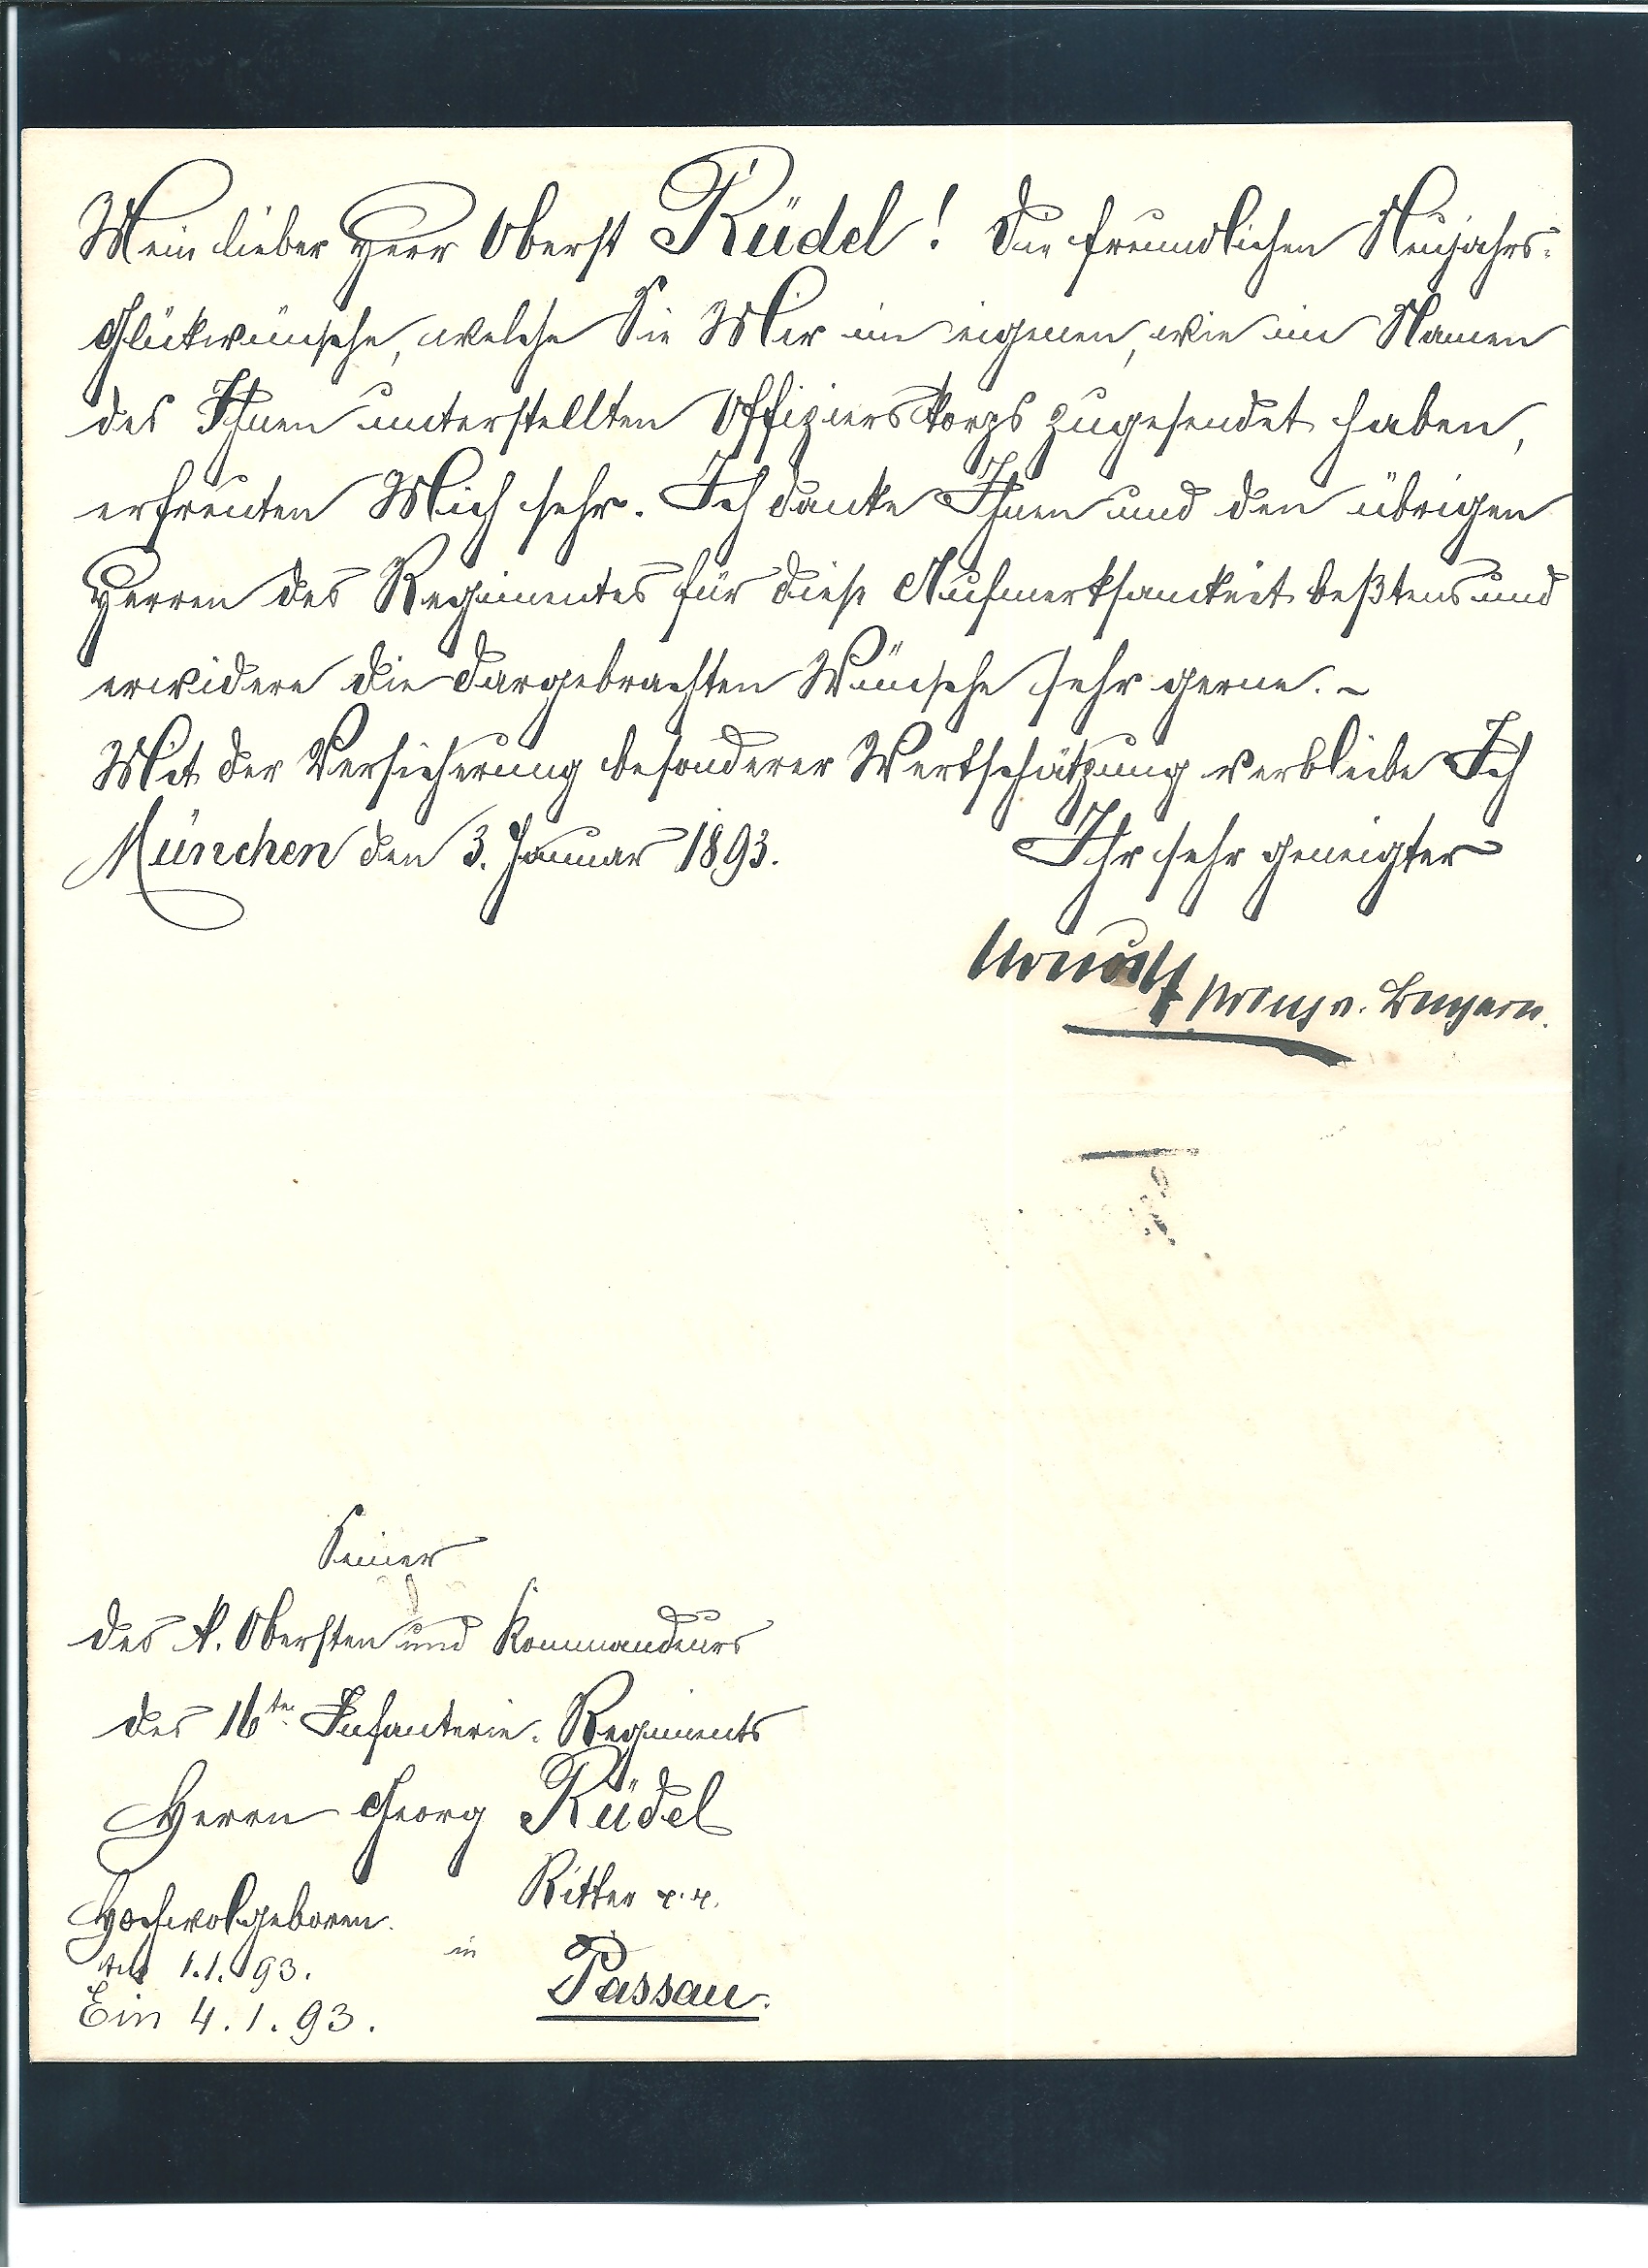 Mein lieber Herr Oberst Rüdel! Die freundlichen Neujahrs-
Glückwünsche, welche Sie Mir im eigenen, wie im Namen
des Ihnen unterstellten Offizierskorps zugesendet haben,
erfreuten Mich sehr. Ich danke Ihnen und den übrigen
Herren des Regimentes für diese Aufmerksamkeit beßtens und
erwidere die dargebrachten Wünsche sehr gerne. –
Mit der Versicherung besonderer Wertschätzung verbleibe Ich
München den 3. Januar 1893.
Ihr sehr geneigter
Arnulf Prinz v. Bayern.
Seiner
des k. Obersten und Kommandeurs
des 16ten Infanterie-Regiments
Herrn Georg Rüdel
Ritter
Hochwolgeboren.
in
1.1.93.
Passau.
Ein 4.1.93.